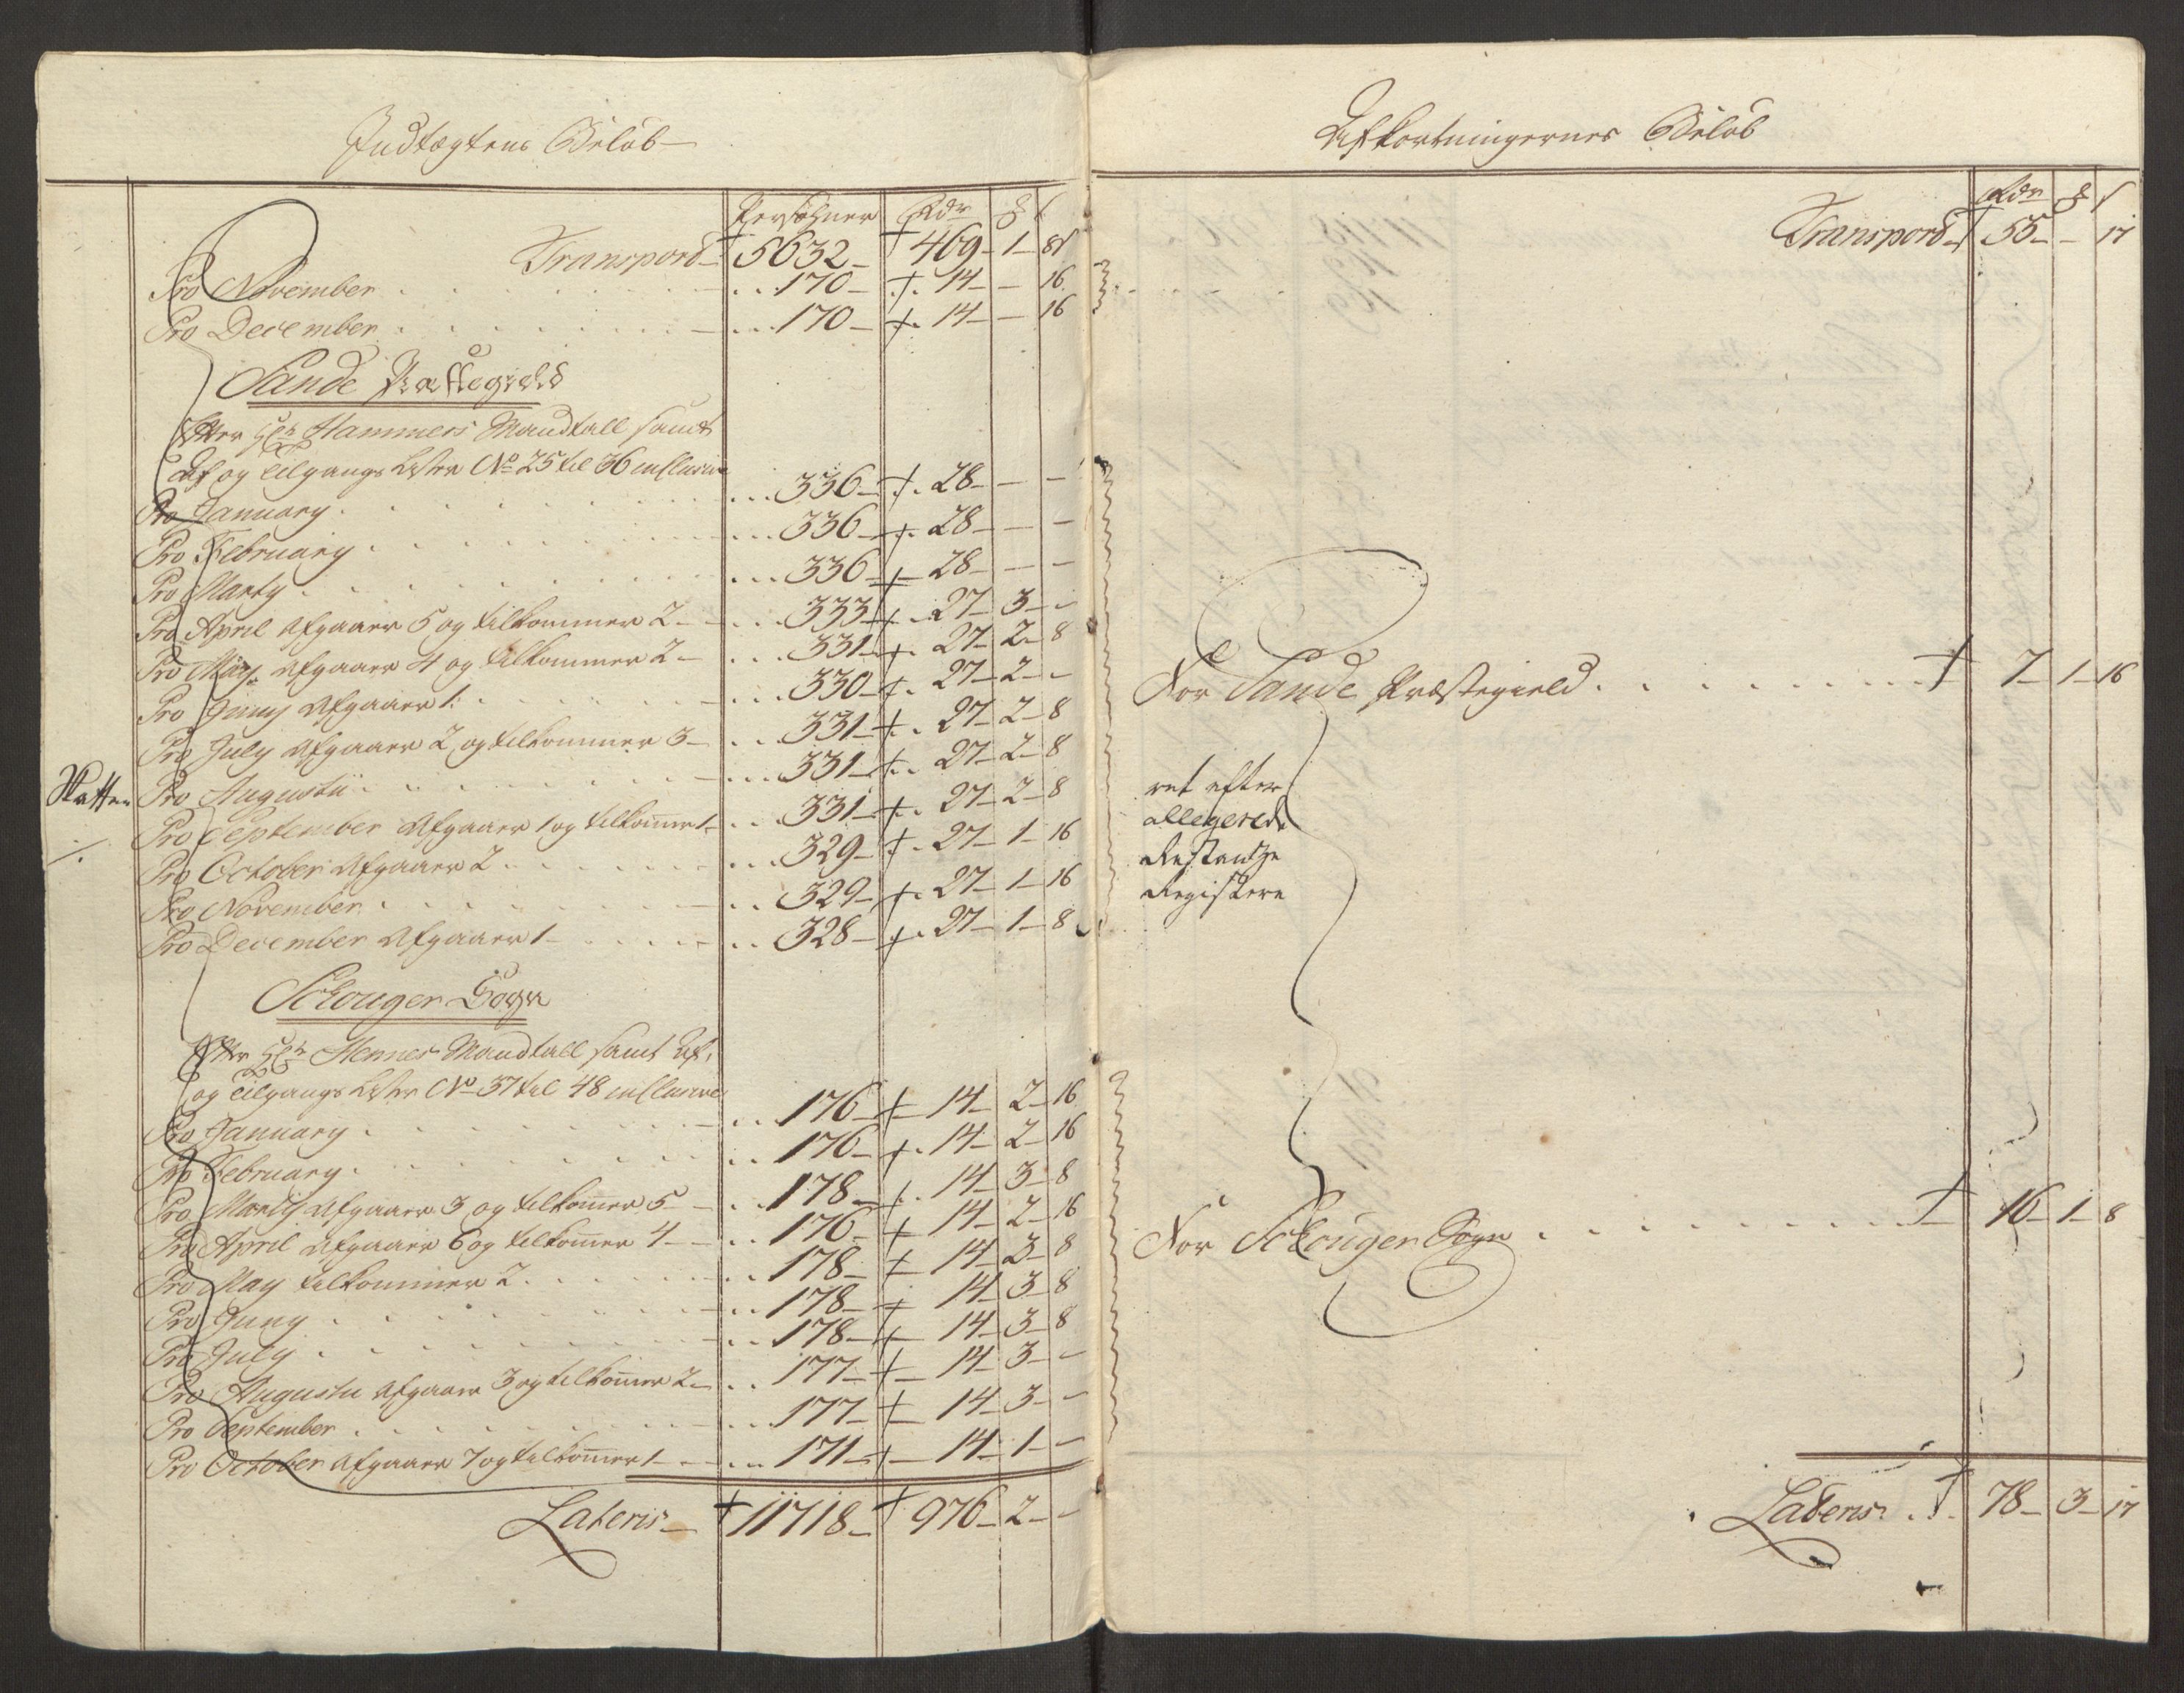 Indtægtens Beløb
Persohner Rdr
Transpord 5632 469 1 8
Pro November 170 14 16
Pro December 170 14 16
Sande Præstegield
Efter Hammers Mandtall samt
Af og Tilgangs Lister No 25 til 36 inclusive
Pro January 336 28
Pro February 336 28
Pro Marty 336 28
Pro April Afgaaer 5 og tilkommer 2 333 27 3
Pro May Afgaaer 4 og tilkommer 2 331 27 2 8
Pro Juny Afgaaer 1 330 27 2
Pro July Afgaaer 2 og tilkommer 3 331 27 2 8
Skatten
Pro Augusti 331 27 2 8
Pro September Afgaaer 1 og tilkom̄er 1 331 27 2 8
Pro October Afgaaer 2 329 27 1 16
Pro November 329 27 1 16
Pro December Afgaaer 1 328 27 1 8
Schouger Sogn
Efter Mandtall samt Af
og Tilgangs Lister No 37 til 48 inclusive
Pro January 176 14 2 16
Pro February 176 14 2 16
Pro Marty Afgaaer 3 og tilkom̄er 5 178 14 3 8
Pro April Afgaaer 6 og tilkom̄er 4 176 14 2 16
Pro May tilkommer 2 178 14 3 8
Pro Juny 178 14 3 8
Pro July 178 14 3 8
Pro Augustu Afgaaer 3 og tilkom̄er 2 177 14 3
Pro September 177 14 3
Pro October Afgaaer 7 og tilkom̄er 1 171 14 1
Lateris 11718 976 2
Afkortningernes Beløb
Rdr
Transpord 55 17
For Sande Præstegield 7 1 16
ret efter
allegerede
Restantze
Registere
For Schouger Sogn 16 1 8
Lateris 78 3 17